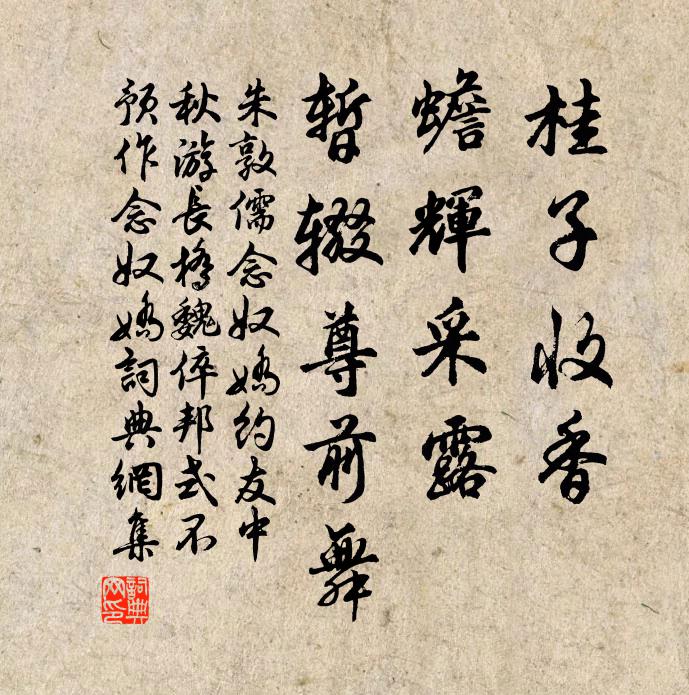 桂子收香
蟾輝采露
暫輟尊前舞
朱敦儒念奴嬌約友中
秋游長橋魏倅邦式不
預作念奴嬌詞典網集
詞典網印